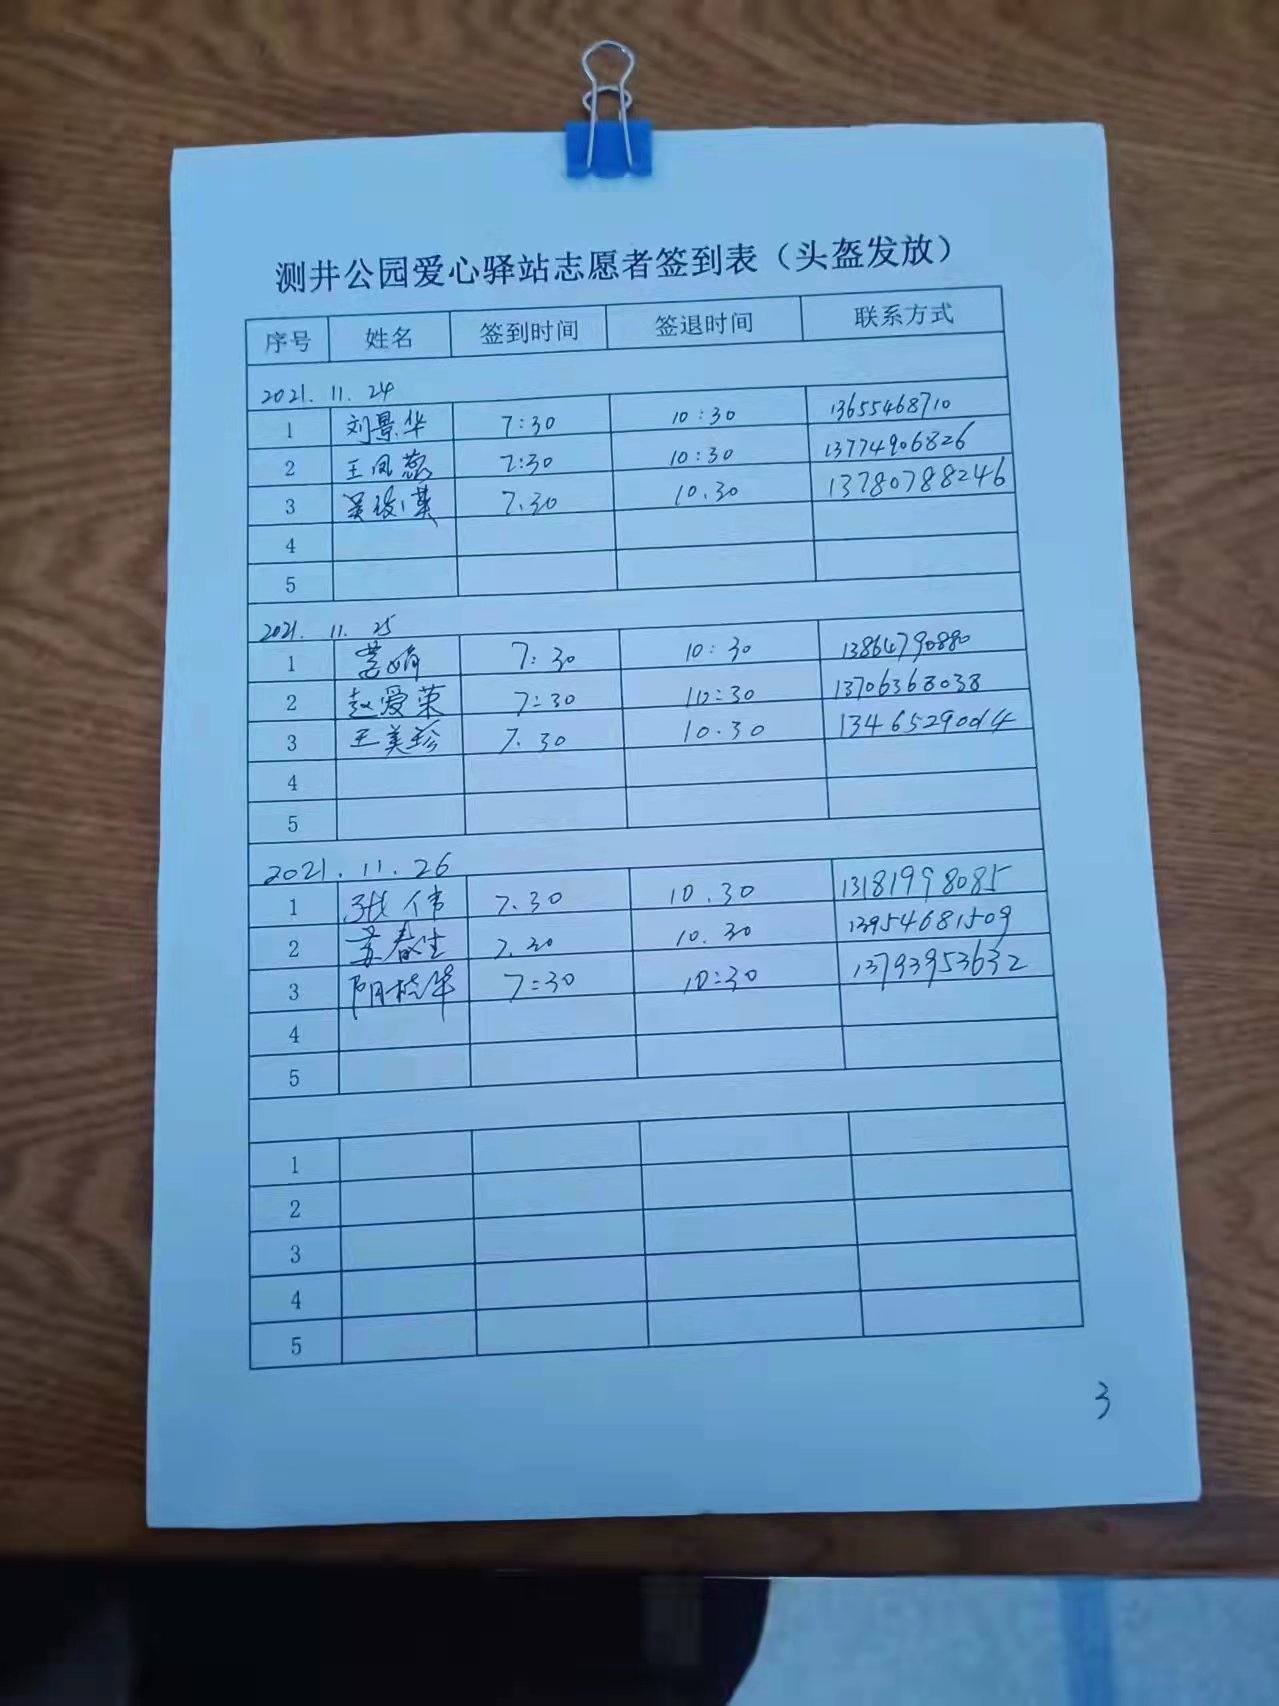 测井公园爱心驿站志愿者签到表（头盔发放）
序号 姓名 签到时间 签退时间 联系方式
2021. 11. 24
1 刘景华 7:30 10:30 13655468710
2 王凤蕊 7:30 10:30 13774906826
3 7.30 10.30 13780788246
4
5
2021. 11. 25
1 7:30 10:30 13864790880
2 赵爱荣 7:30 10:30 13706368038
3 王美珍 7.30 10.30 13465290014
4
5
2021. 11. 26
1 张伟 7.30 10.30 13181998085
2 苏春生 7.30 10.30 13954681509
3 7:30 10:30 13793953632
4
5
1
2
3
4
5
3